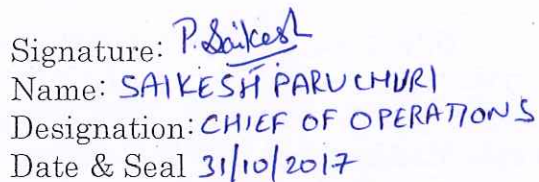 Signature: P. Saikesh
Name: SAIKESH PARUCHURI
Designation: CHIEF OF OPERATIONS
Date & Seal 31/10/2017